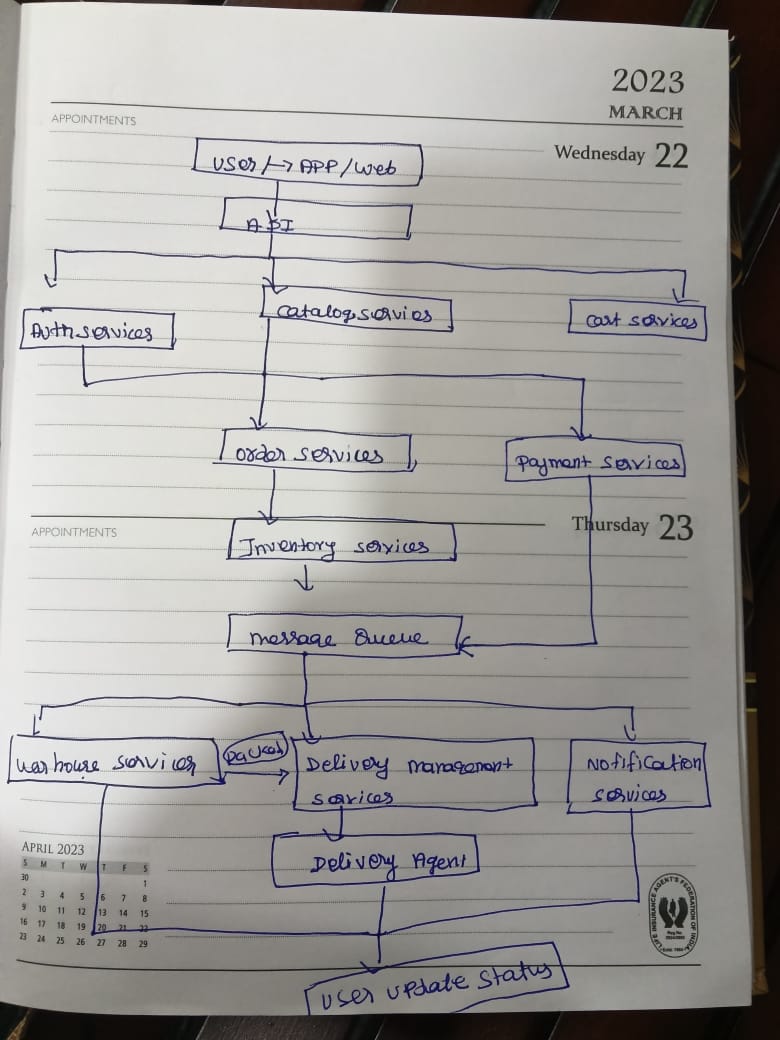 2023
MARCH
APPOINTMENTS
Wednesday 22
User / → APP / Web
API
Auth services
Catalog servies
Cart services
Order services
Payment services
APPOINTMENTS
Thursday 23
Inventory services
message Queue
Warhouse services
packed
Delivery management
services
Notification
services
Delivery Agent
APRIL 2023
S M T W T F S
30 1
2 3 4 5 6 7 8
9 10 11 12 13 14 15
16 17 18 19 20 21 22
23 24 25 26 27 28 29
LIFE INSURANCE AGENT'S FEDERATION OF INDIA
User update status